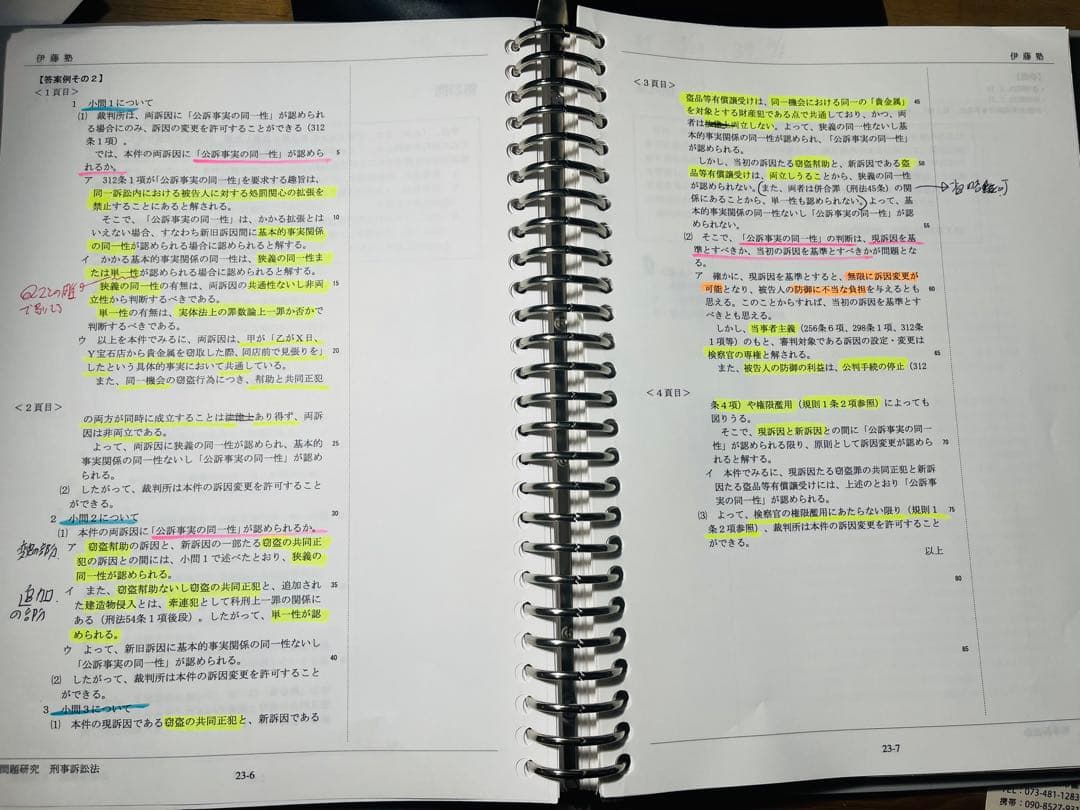 伊藤塾
【答案例その２】
＜１頁目＞
１　小問１について
⑴　裁判所は、両訴因に「公訴事実の同一性」が認められ
る場合にのみ、訴因の変更を許可することができる（312
条１項）。
では、本件の両訴因に「公訴事実の同一性」が認めら
5
れるか。
ア　312条１項が「公訴事実の同一性」を要求する趣旨は、
同一訴訟内における被告人に対する処罰関心の拡張を
禁止することにあると解される。
そこで、「公訴事実の同一性」は、かかる拡張とは
10
いえない場合、すなわち新旧訴因間に基本的事実関係
の同一性が認められる場合に認められると解する。
イ　かかる基本的事実関係の同一性は、狭義の同一性ま
たは単一性が認められる場合に認められると解する。
狭義の同一性の有無は、両訴因の共通性ないし非両
15
立性から判断するべきである。
単一性の有無は、実体法上の罪数論上一罪か否かで
判断するべきである。
ウ　以上を本件でみるに、両訴因は、甲が「乙がＸ日、
Ｙ宝石店から貴金属を窃取した際、同店前で見張りを」
20
したという具体的事実において共通している。
また、同一機会の窃盗行為につき、幇助と共同正犯
＜２頁目＞
の両方が同時に成立することは法律上あり得ず、両訴
因は非両立である。
よって、両訴因に狭義の同一性が認められ、基本的
25
事実関係の同一性ないし「公訴事実の同一性」が認め
られる。
⑵　したがって、裁判所は本件の訴因変更を許可すること
ができる。
２　小問２について
30
⑴　本件の両訴因に「公訴事実の同一性」が認められるか。
ア　窃盗幇助の訴因と、新訴因の一部たる窃盗の共同正
犯の訴因との間には、小問１で述べたとおり、狭義の
同一性が認められる。
追加の部分
イ　また、窃盗幇助ないし窃盗の共同正犯と、追加され
35
た建造物侵入とは、牽連犯として科刑上一罪の関係に
ある（刑法54条１項後段）。したがって、単一性が認
められる。
ウ　よって、新旧訴因に基本的事実関係の同一性ないし
「公訴事実の同一性」が認められる。
40
⑵　したがって、裁判所は本件の訴因変更を許可すること
ができる。
３　小問３について
⑴　本件の現訴因である窃盗の共同正犯と、新訴因である
問題研究　刑事訴訟法
23-6
伊藤塾
＜３頁目＞
盗品等有償譲受けは、同一機会における同一の「貴金属」
45
を対象とする財産犯である点で共通しており、かつ、両
者は法律上両立しない。よって、狭義の同一性ないし基
本的事実関係の同一性が認められ、「公訴事実の同一性」
が認められる。
しかし、当初の訴因たる窃盗幇助と、新訴因である盗
50
品等有償譲受けは、両立しうることから、狭義の同一性
が認められない。（また、両者は併合罪（刑法45条）の関
係にあることから、単一性も認められない。）よって、基
本的事実関係の同一性ないし「公訴事実の同一性」が認
められない。
55
⑵　そこで、「公訴事実の同一性」の判断は、現訴因を基
準とすべきか、当初の訴因を基準とすべきかが問題とな
る。
ア　確かに、現訴因を基準とすると、無限に訴因変更が
可能となり、被告人の防御に不当な負担を与えるとも
60
思える。このことからすれば、当初の訴因を基準とす
べきとも思える。
しかし、当事者主義（256条６項、298条１項、312条
１項）等のもと、審判対象である訴因の設定・変更は
検察官の専権と解される。
65
また、被告人の防御の利益は、公判手続の停止（312
＜４頁目＞
条４項）や権限濫用（規則１条２項参照）によっても
図りうる。
そこで、現訴因と新訴因との間に「公訴事実の同一
性」が認められる限り、原則として訴因変更が認めら
70
れると解する。
イ　本件でみるに、現訴因たる窃盗罪の共同正犯と新訴
因たる盗品等有償譲受けには、上述のとおり「公訴事
実の同一性」が認められる。
⑶　よって、検察官の権限濫用にあたらない限り（規則１
75
条２項参照）、裁判所は本件の訴因変更を許可することが
できる。
以上
80
85
23-7
TEL：073-481-1283
携帯：090-8527-9